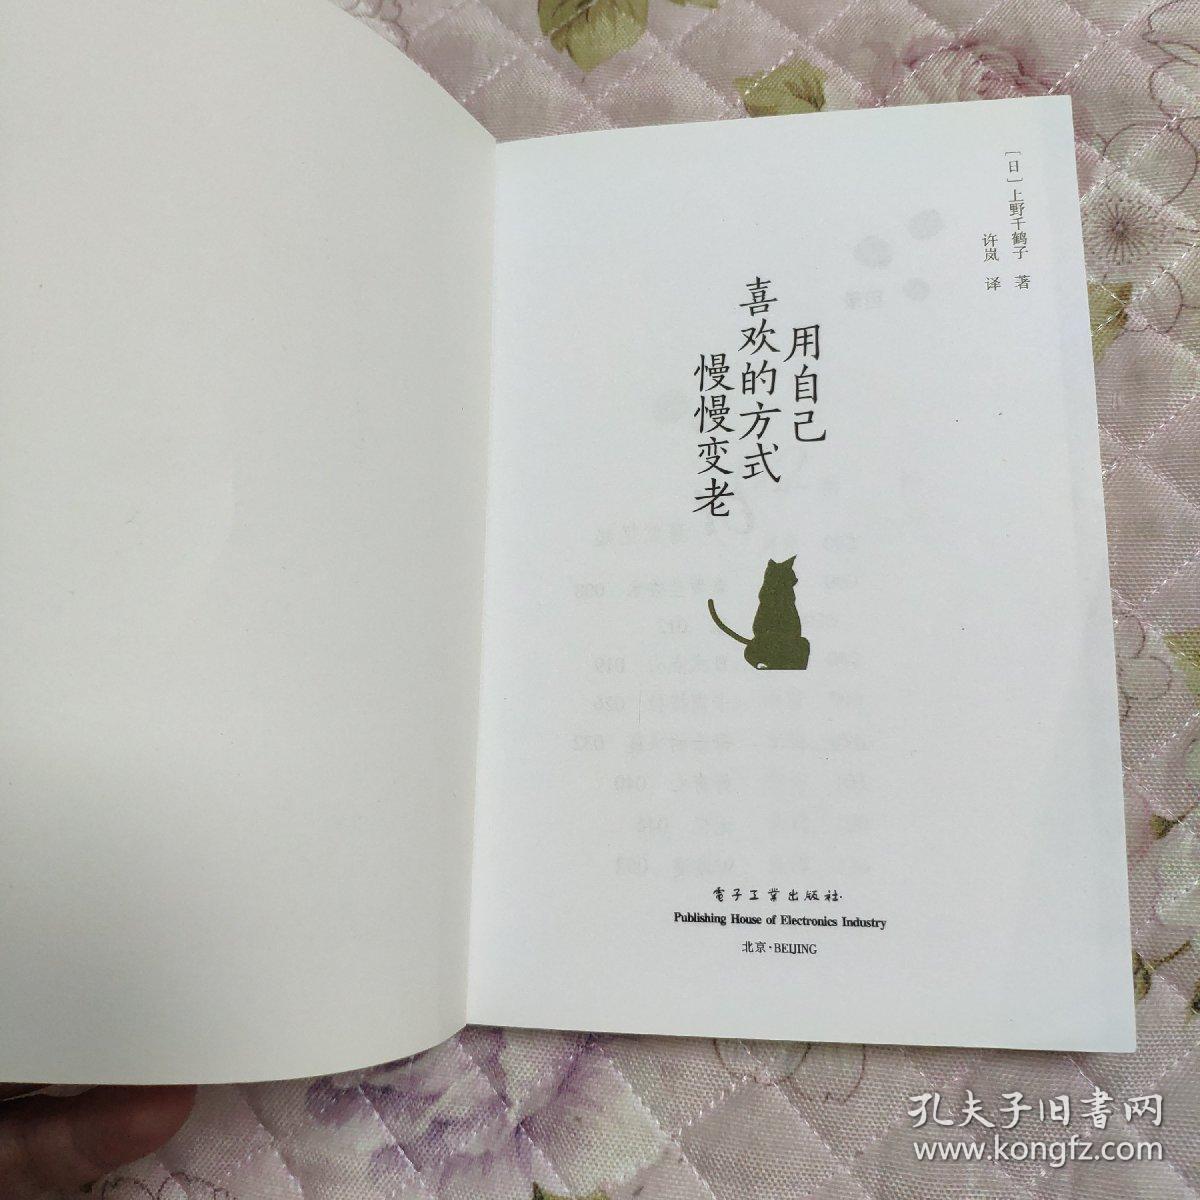 [日]上野千鹤子 著
许岚 译
用自己
喜欢的方式
慢慢变老
電子工業出版社·
Publishing House of Electronics Industry
北京·BEIJING
孔夫子旧書网
www.kongfz.com